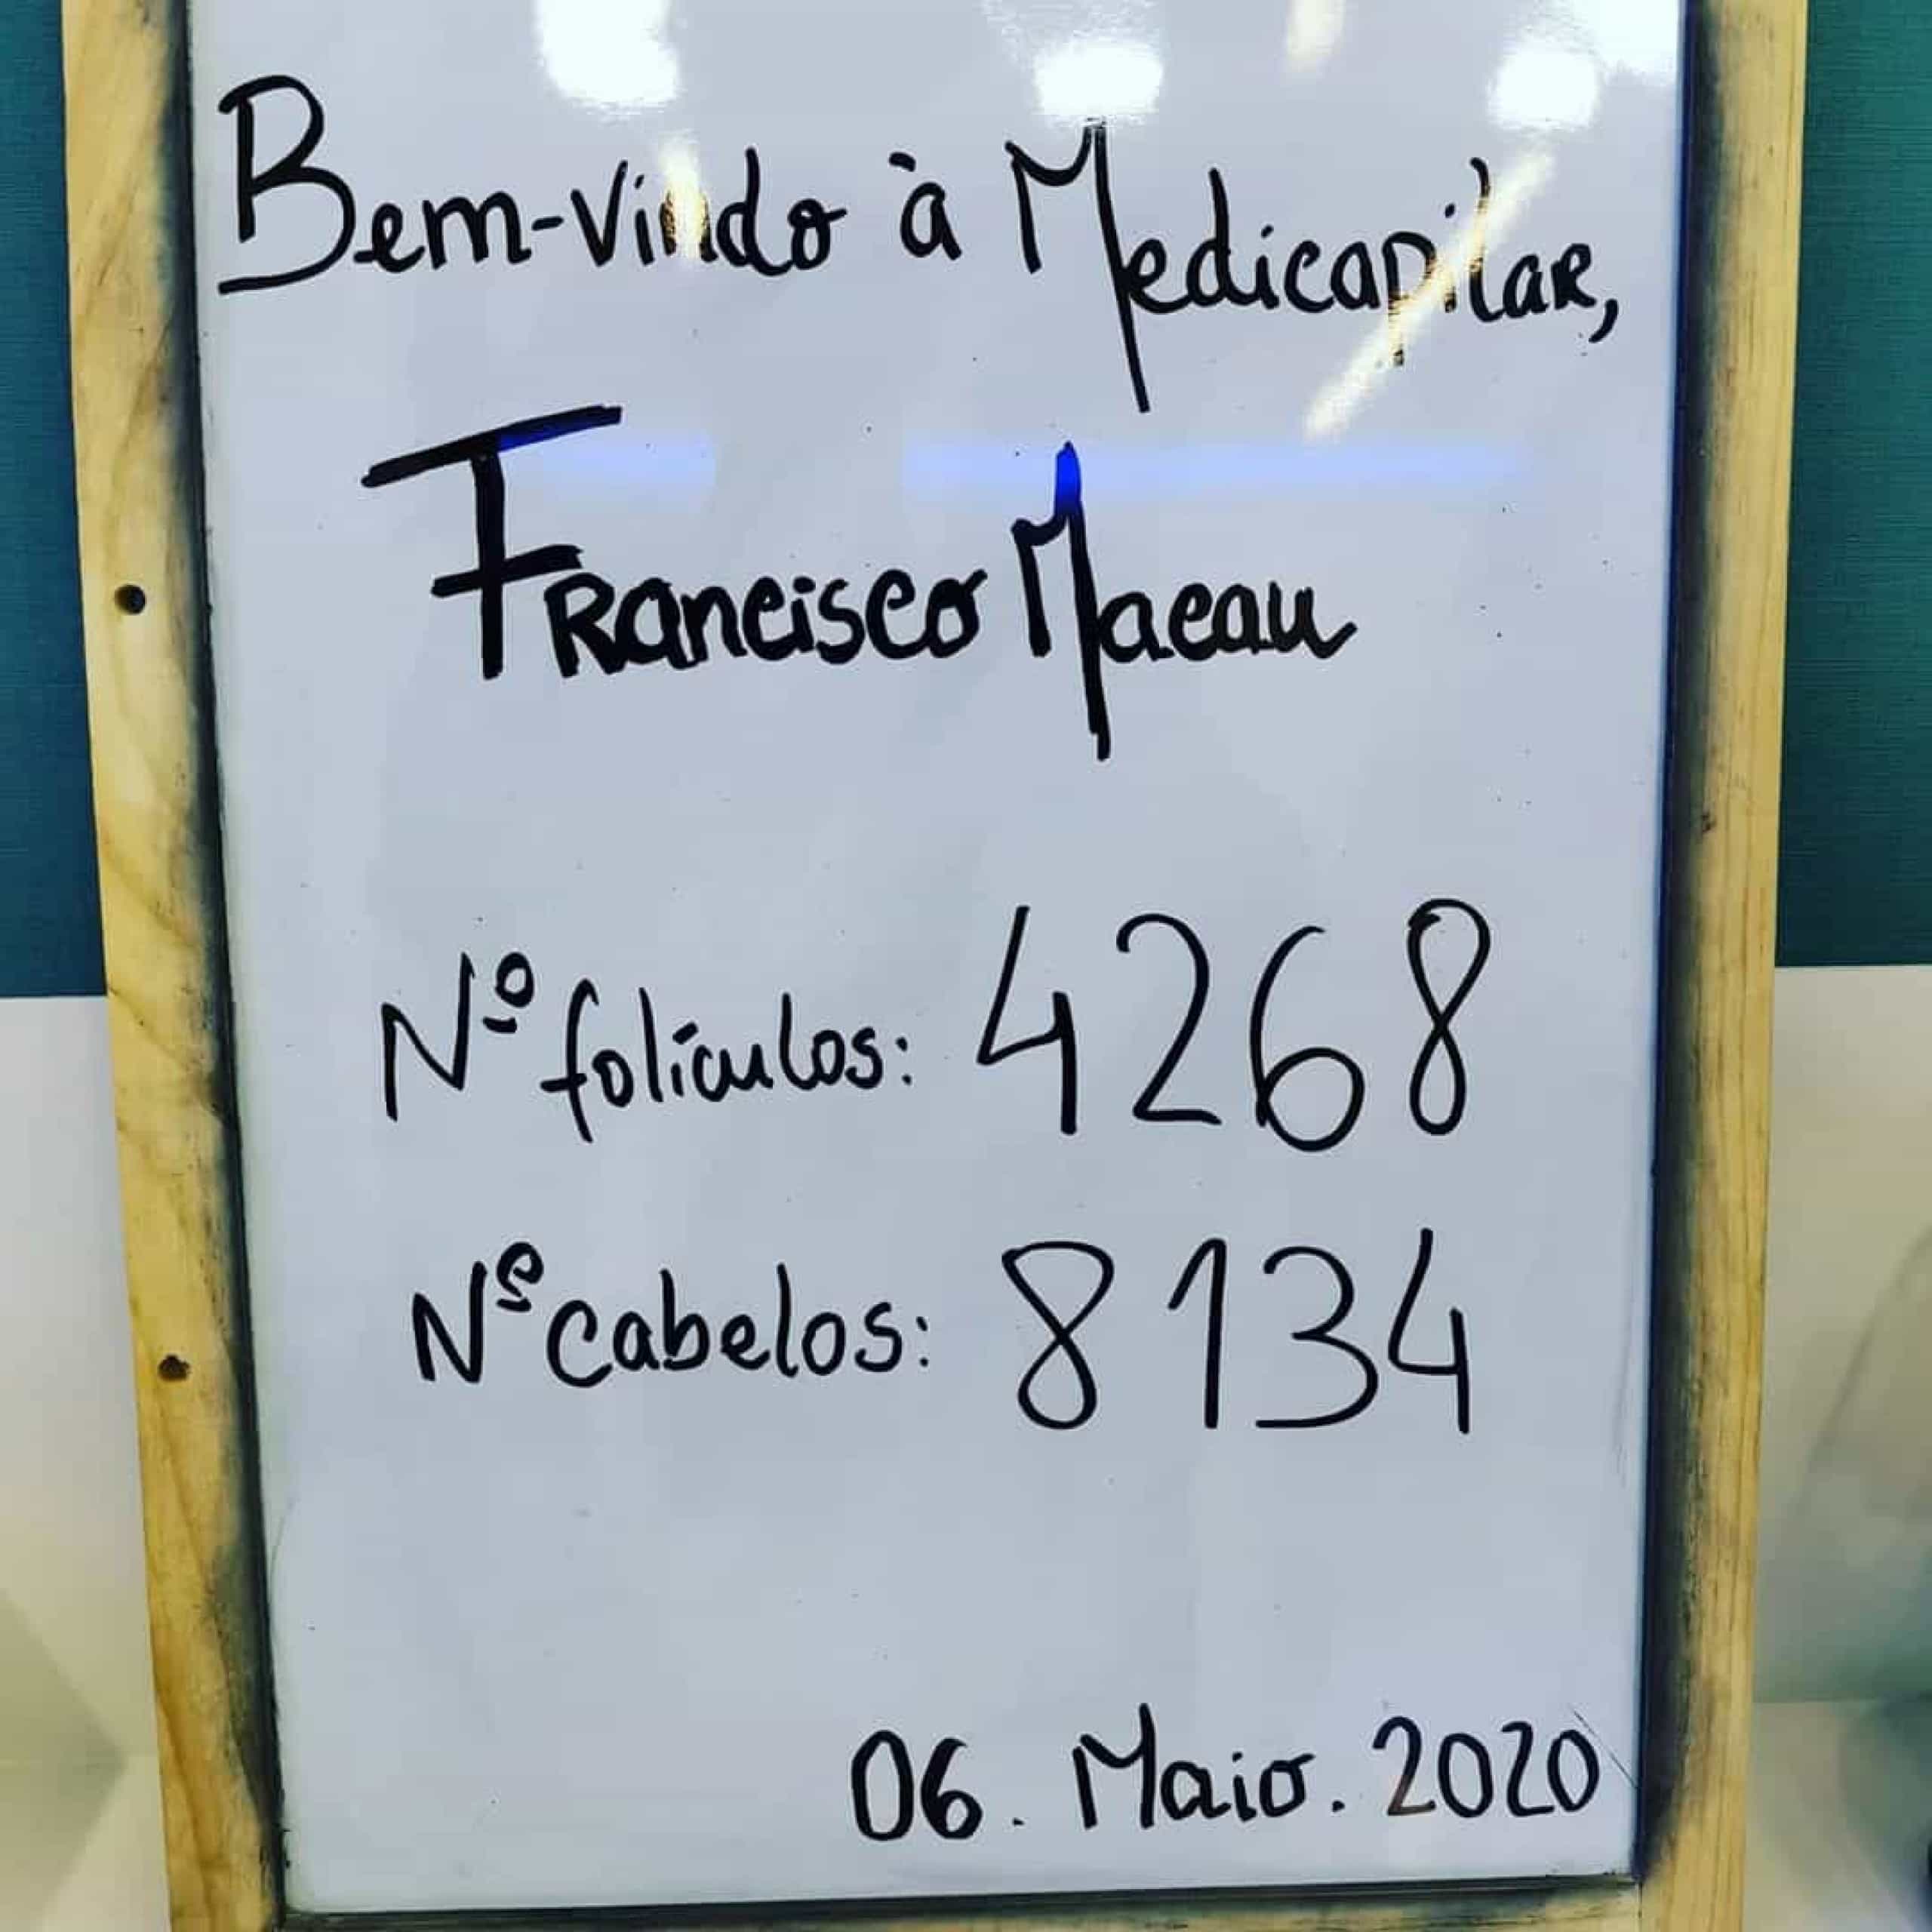 Bem-vindo à Medicapilar,
Francisco Macau
Nº folículos: 4268
Nº cabelos: 8134
06. Maio. 2020